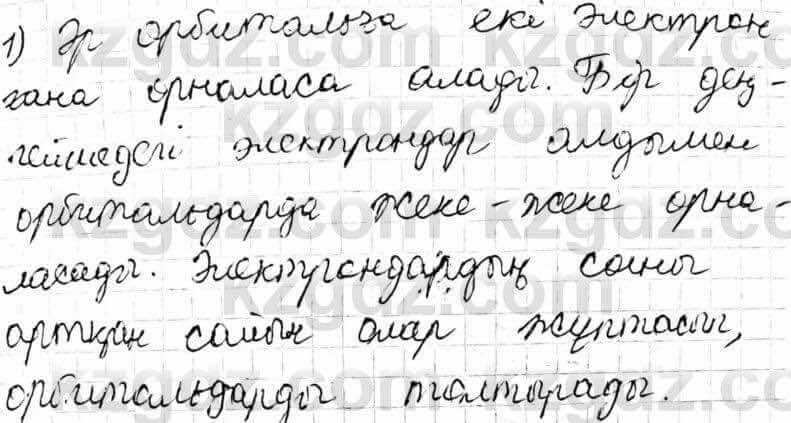 1) Әр орбитальға екі электрон
ғана орналаса алады. Бір дең-
гейшедегі электрондар алдымен
орбитальдарда жеке-жеке орна-
ласады. Электрондардың саны
артқан сайын олар жұптасып,
орбитальдарды толтырады.